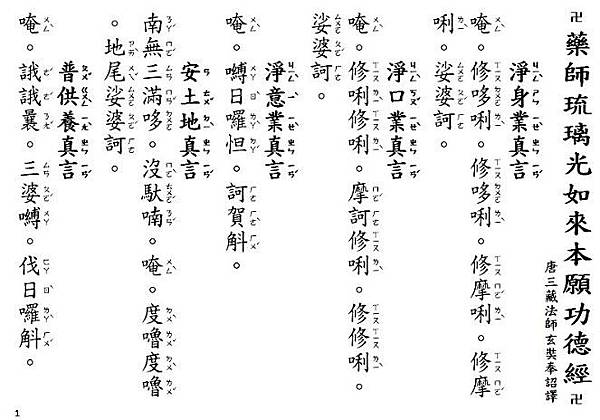 卍藥師琉璃光如來本願功德經卍
唐三藏法師玄奘奉詔譯
淨身業真言
唵。修哆唎。修哆唎。修摩唎。修摩
唎。娑婆訶。
淨口業真言
唵。修唎修唎。摩訶修唎。修修唎。
娑婆訶。
淨意業真言
唵。嚩日囉怛。訶賀斛。
安土地真言
南無三滿哆。沒馱喃。唵。度嚕度嚕
。地尾娑婆訶。
普供養真言
唵。誐誐曩。三婆嚩。伐日囉斛。
1